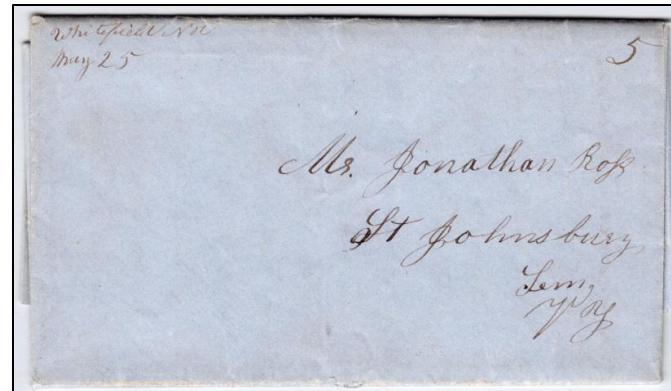 Whitefield NH
May 25
5
Mr. Jonathan Ross
St Johnsbury
Vt